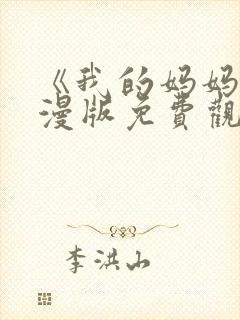 《我的妈妈
漫版免費觀
李洪山